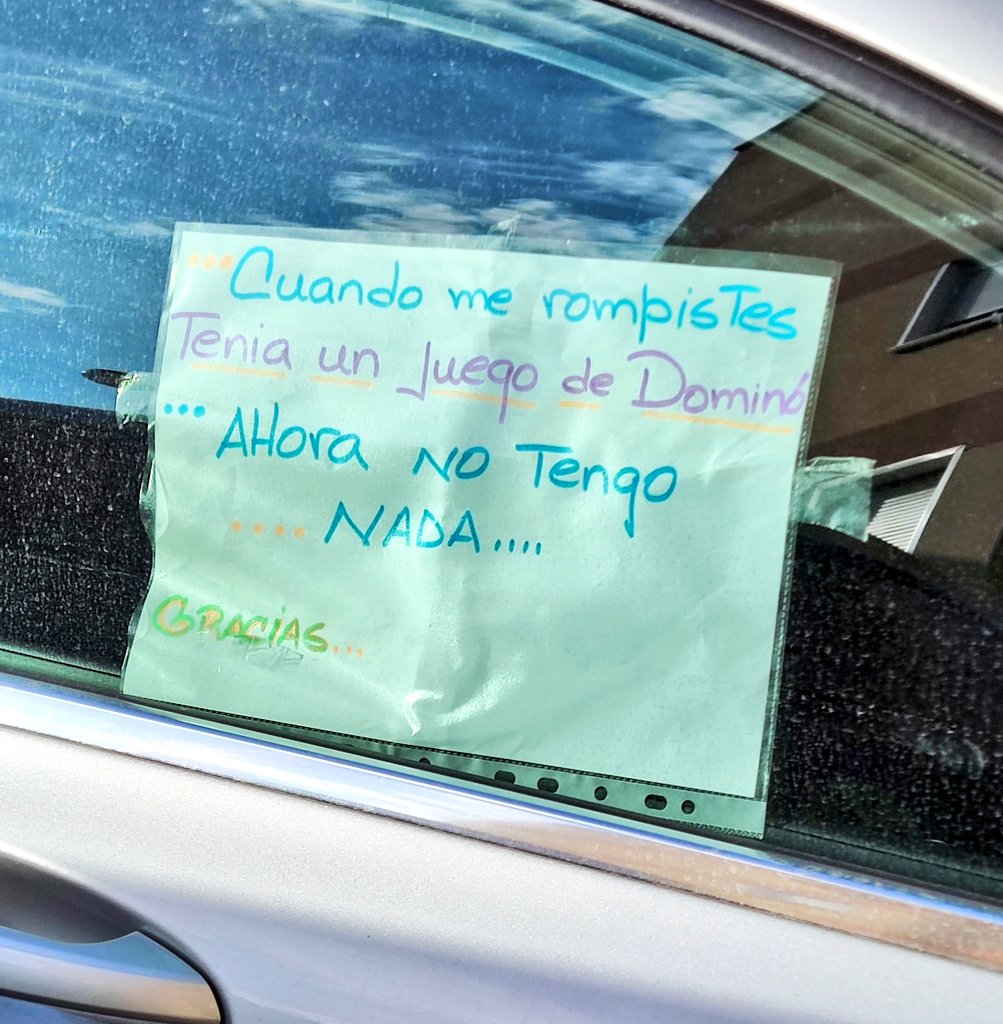 ...Cuando me rompisTes
Tenia un Juego de Dominó
... AHora NO Tengo
.... NADA....
GRACIAS...